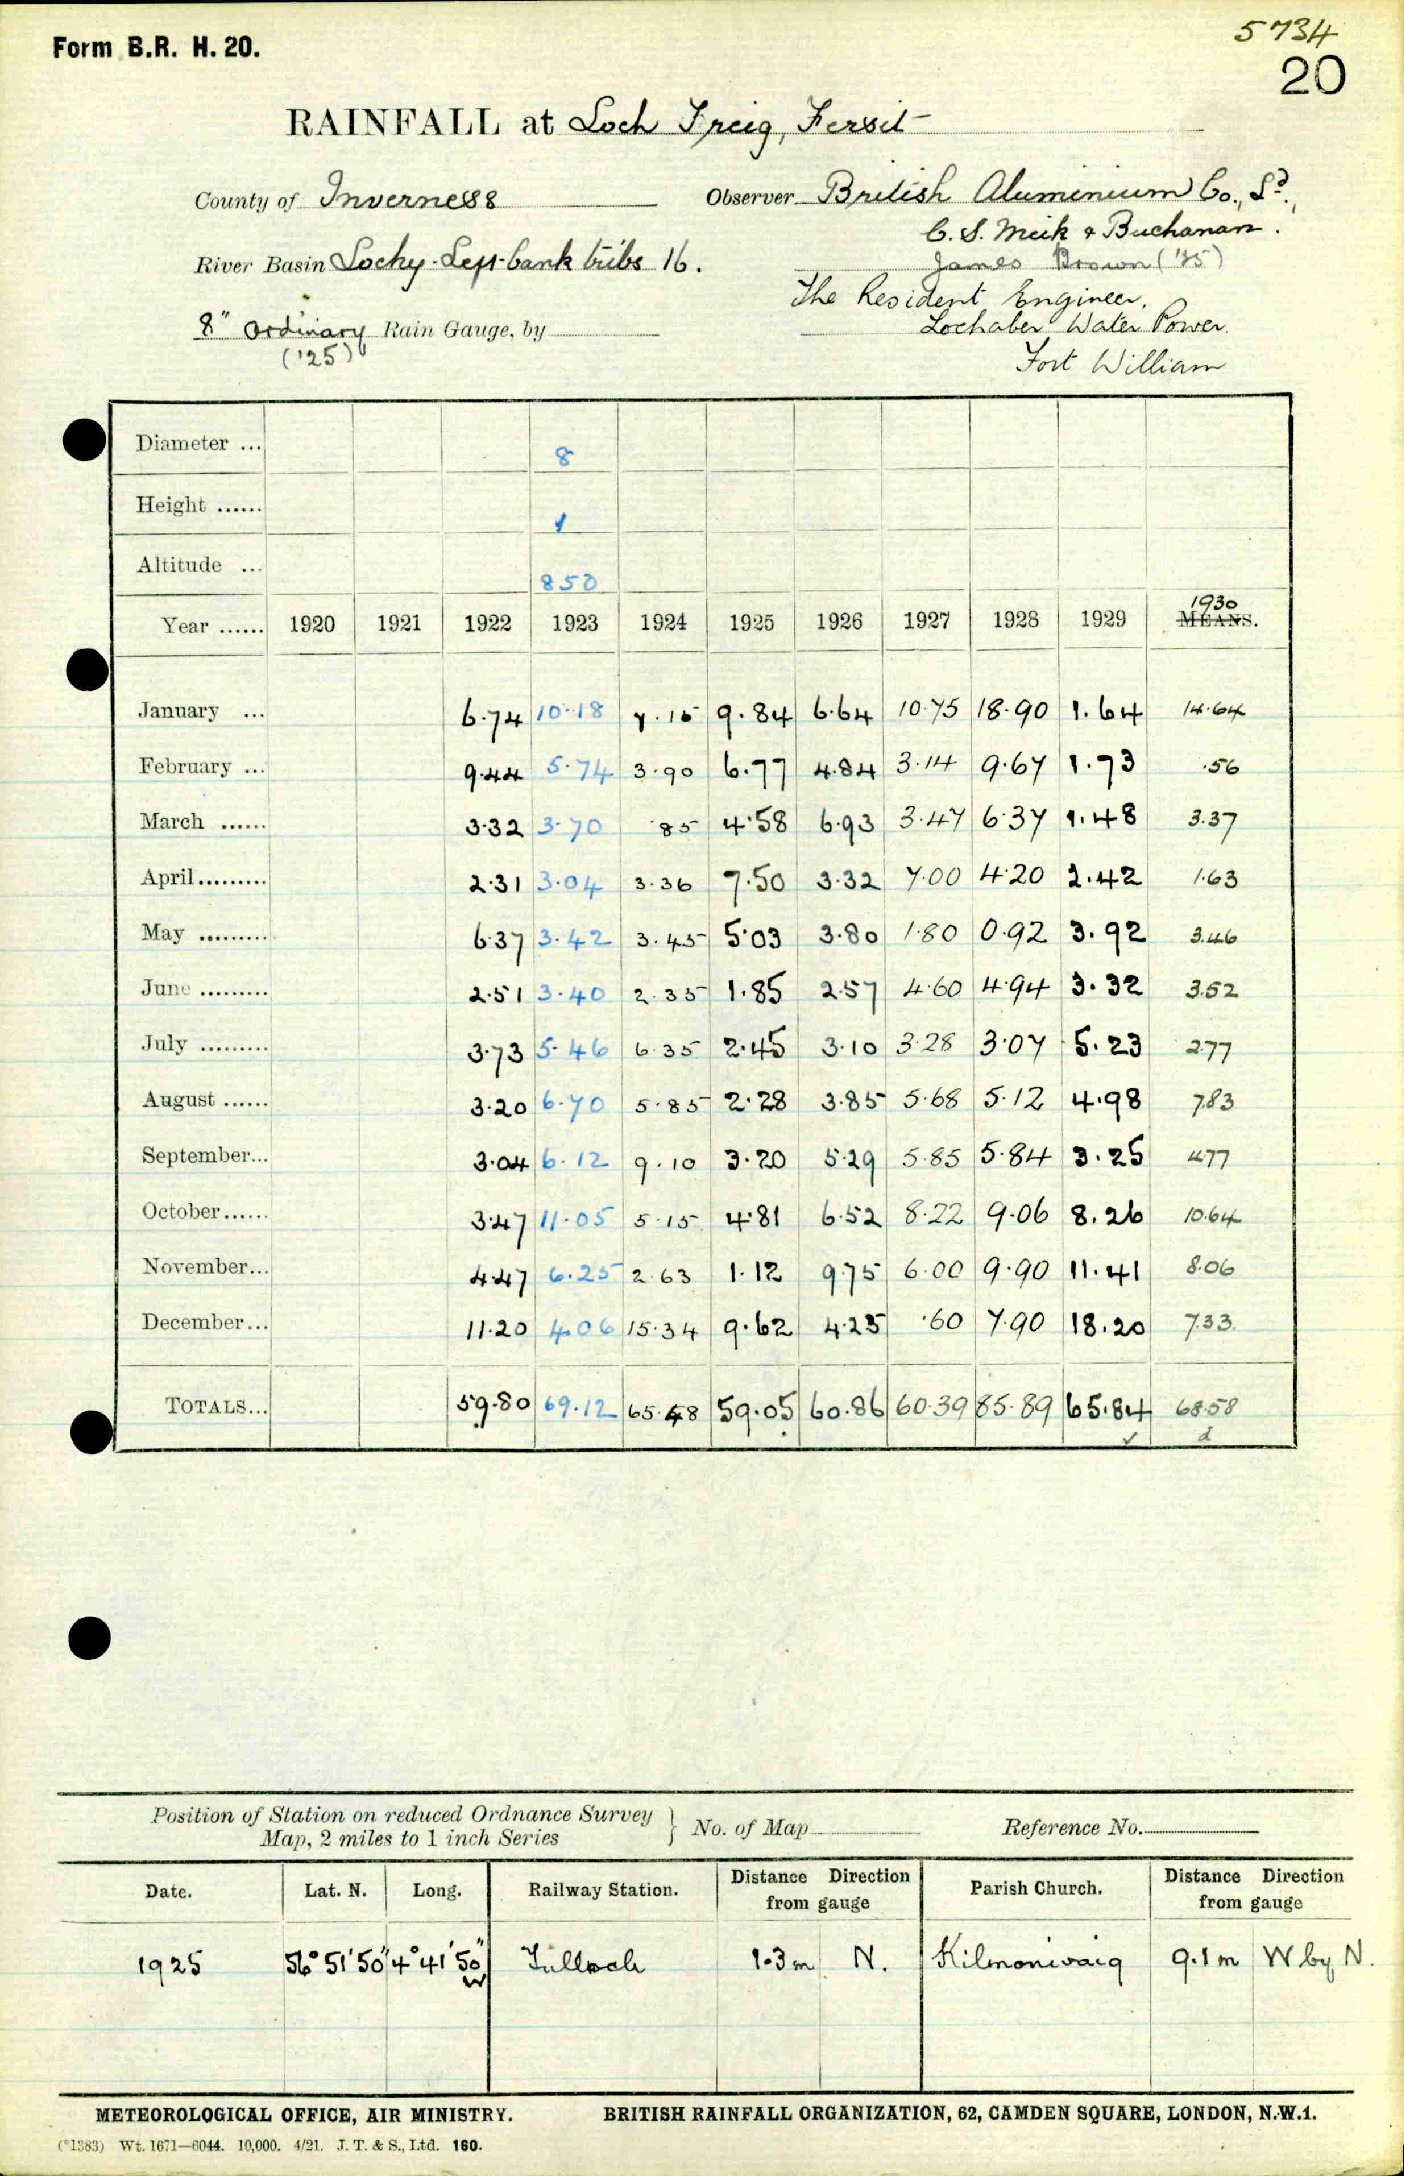 Form B.R. H. 20.
5734
20
RAINFALL at Loch Treig, Fersit
County of Inverness
Observer British Aluminium Co., Ld.,
C. S. Meik & Buchanan.
River Basin Lochy-Left bank tribs 16.
James Brown ('25)
The Resident Engineer,
8" ordinary Rain Gauge, by
Lochaber Water Power.
('25)
Fort William
Diameter ... 8
Height ...... 1
Altitude ... 850
1930
Year ...... 1920 1921 1922 1923 1924 1925 1926 1927 1928 1929 MEANS.
January ... 6.74 10.18 7.15 9.84 6.64 10.75 18.90 1.64 14.64
February ... 9.44 5.74 3.90 6.77 4.84 3.14 9.67 1.73 .56
March ...... 3.32 3.70 .85 4.58 6.93 3.47 6.37 1.48 3.37
April......... 2.31 3.04 3.36 7.50 3.32 7.00 4.20 2.42 1.63
May ......... 6.37 3.42 3.45 5.03 3.80 1.80 0.92 3.92 3.46
June ......... 2.51 3.40 2.35 1.85 2.57 4.60 4.94 3.32 3.52
July ......... 3.73 5.46 6.35 2.45 3.10 3.28 3.07 5.23 2.77
August ...... 3.20 6.70 5.85 2.28 3.85 5.68 5.12 4.98 7.83
September... 3.04 6.12 9.10 3.20 5.29 5.85 5.84 3.25 4.77
October...... 3.47 11.05 5.15 4.81 6.52 8.22 9.06 8.26 10.64
November... 4.47 6.25 2.63 1.12 9.75 6.00 9.90 11.41 8.06
December... 11.20 4.06 15.34 9.62 4.25 .60 7.90 18.20 7.33
TOTALS... 59.80 69.12 65.48 59.05 60.86 60.39 85.89 65.84 68.58
✓ d
Position of Station on reduced Ordnance Survey
Map, 2 miles to 1 inch Series } No. of Map Reference No.
Date. Lat. N. Long. Railway Station. Distance Direction from gauge Parish Church. Distance Direction from gauge
1925 56° 51' 50" 4° 41' 50" W Tulloch 1.3 m N. Kilmonivaig 9.1 m W by N.
METEOROLOGICAL OFFICE, AIR MINISTRY. BRITISH RAINFALL ORGANIZATION, 62, CAMDEN SQUARE, LONDON, N.W.1.
(*1383) Wt. 1671—6044. 10,000. 4/21. J. T. & S., Ltd. 160.